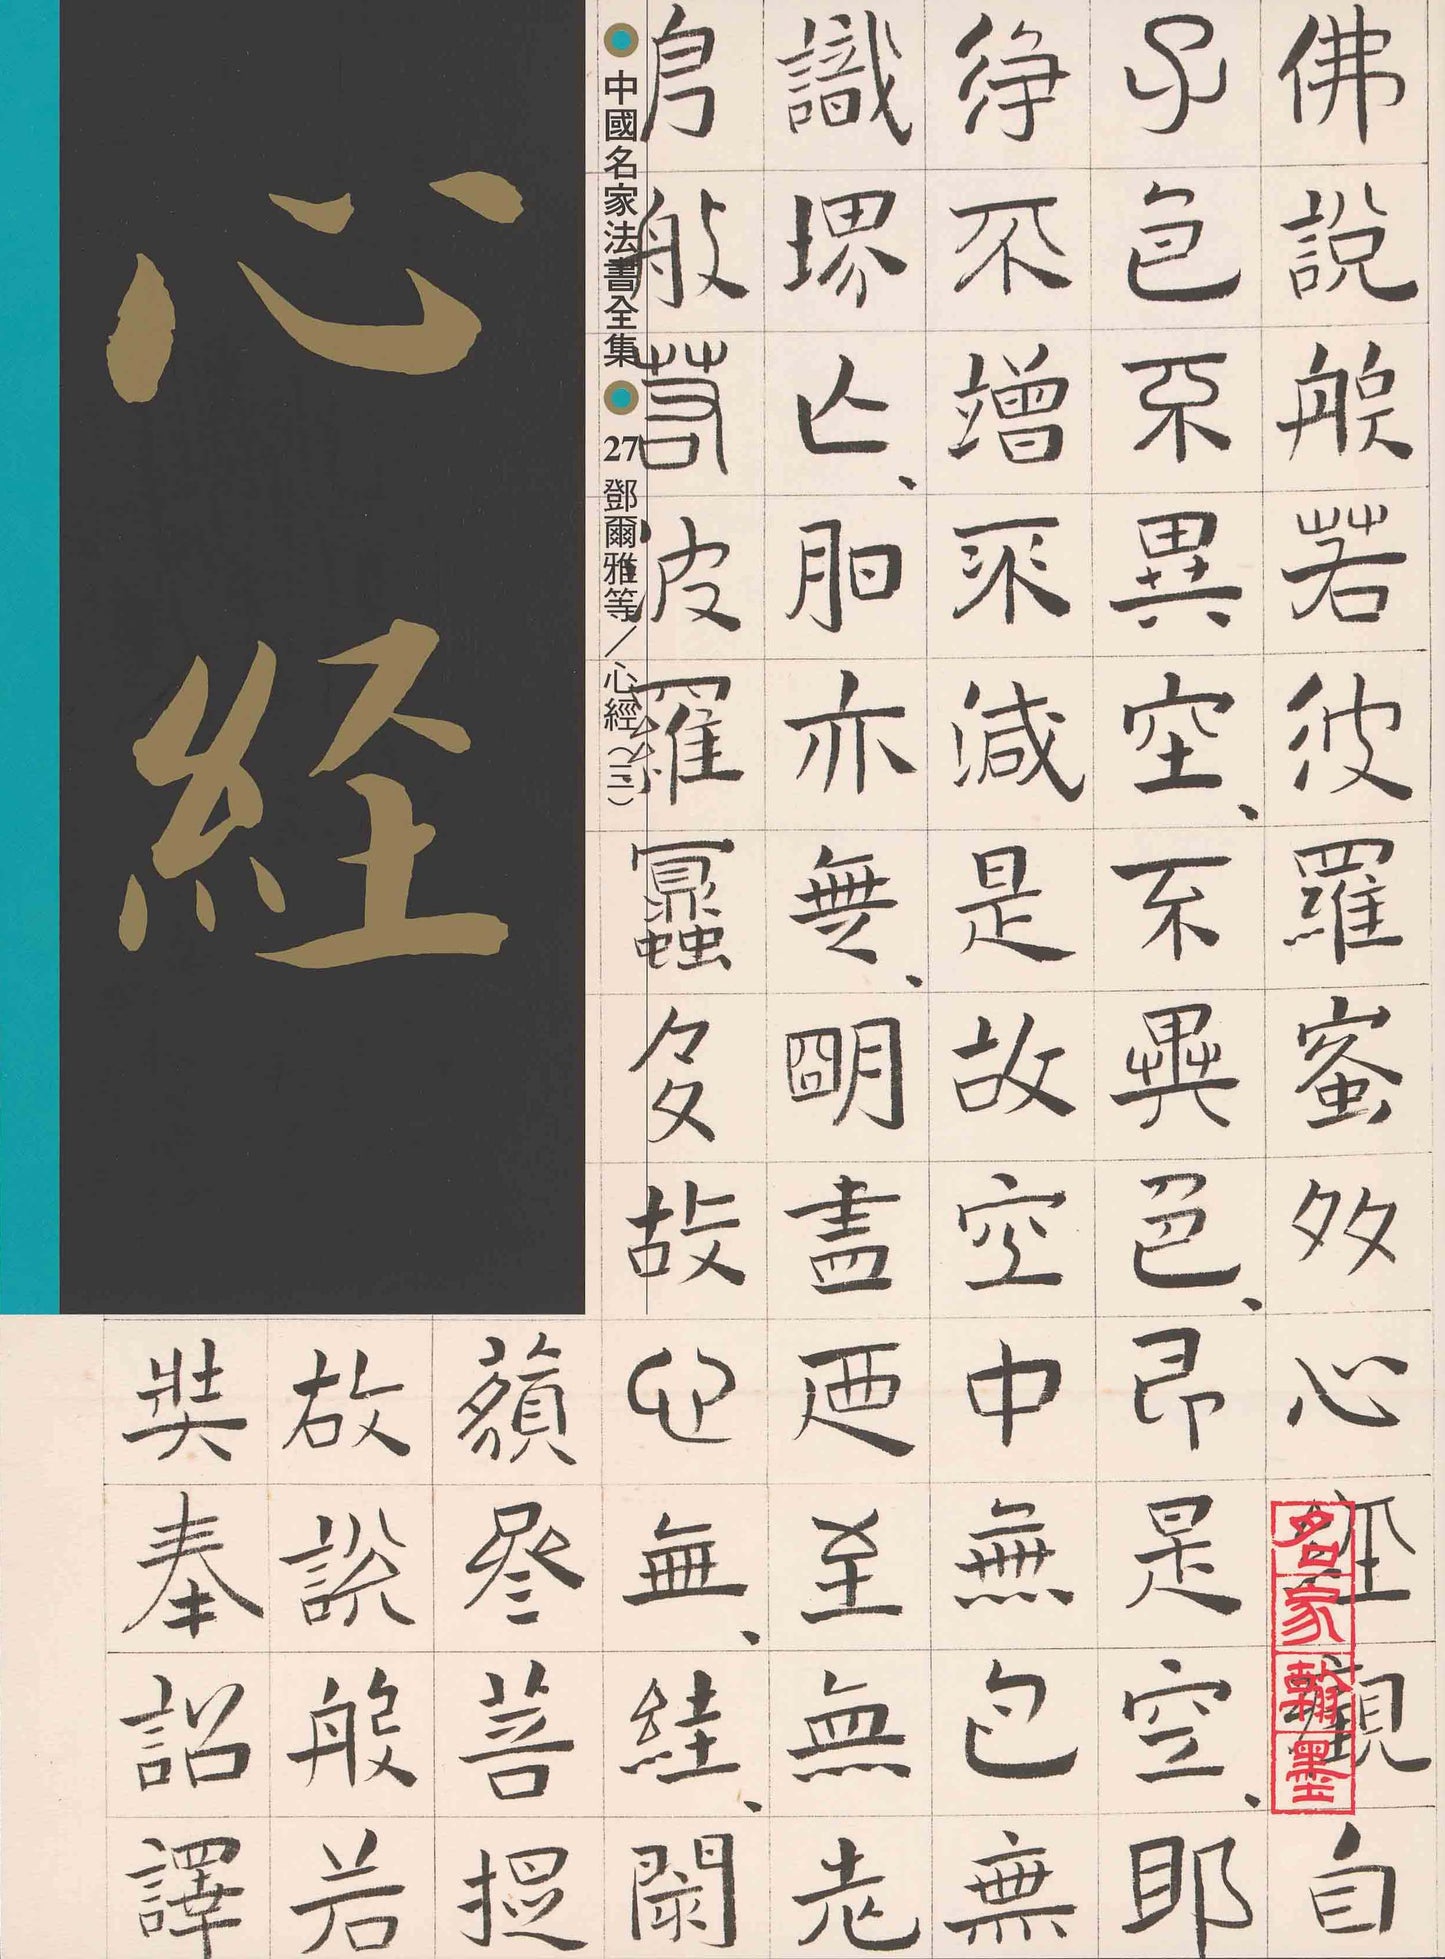 心経
中國名家法書全集 27 鄧爾雅等／心經（三）
佛說般若波羅蜜多心經觀自
子色不異空、不異色、即是空、耶
淨不增不減是故空中無色無
識堺亾、明亦無、明盡廼至無老
㠯般若波羅蜜多故心無、絓、閡
藐參菩提
故說般若
奘奉詔譯
名家翰墨